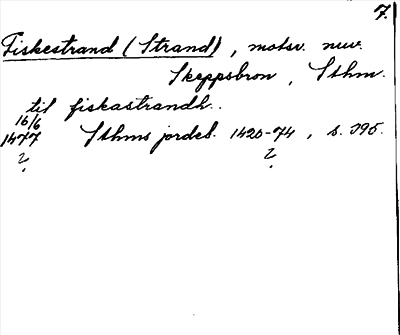 7.
Fiskestrand (Strand), motsv. nuv.
Skeppsbron, Sthm.
til fiskastrandh..
16/6
1477 Sthms jordeb. 1420-74, s. 395.
? ?